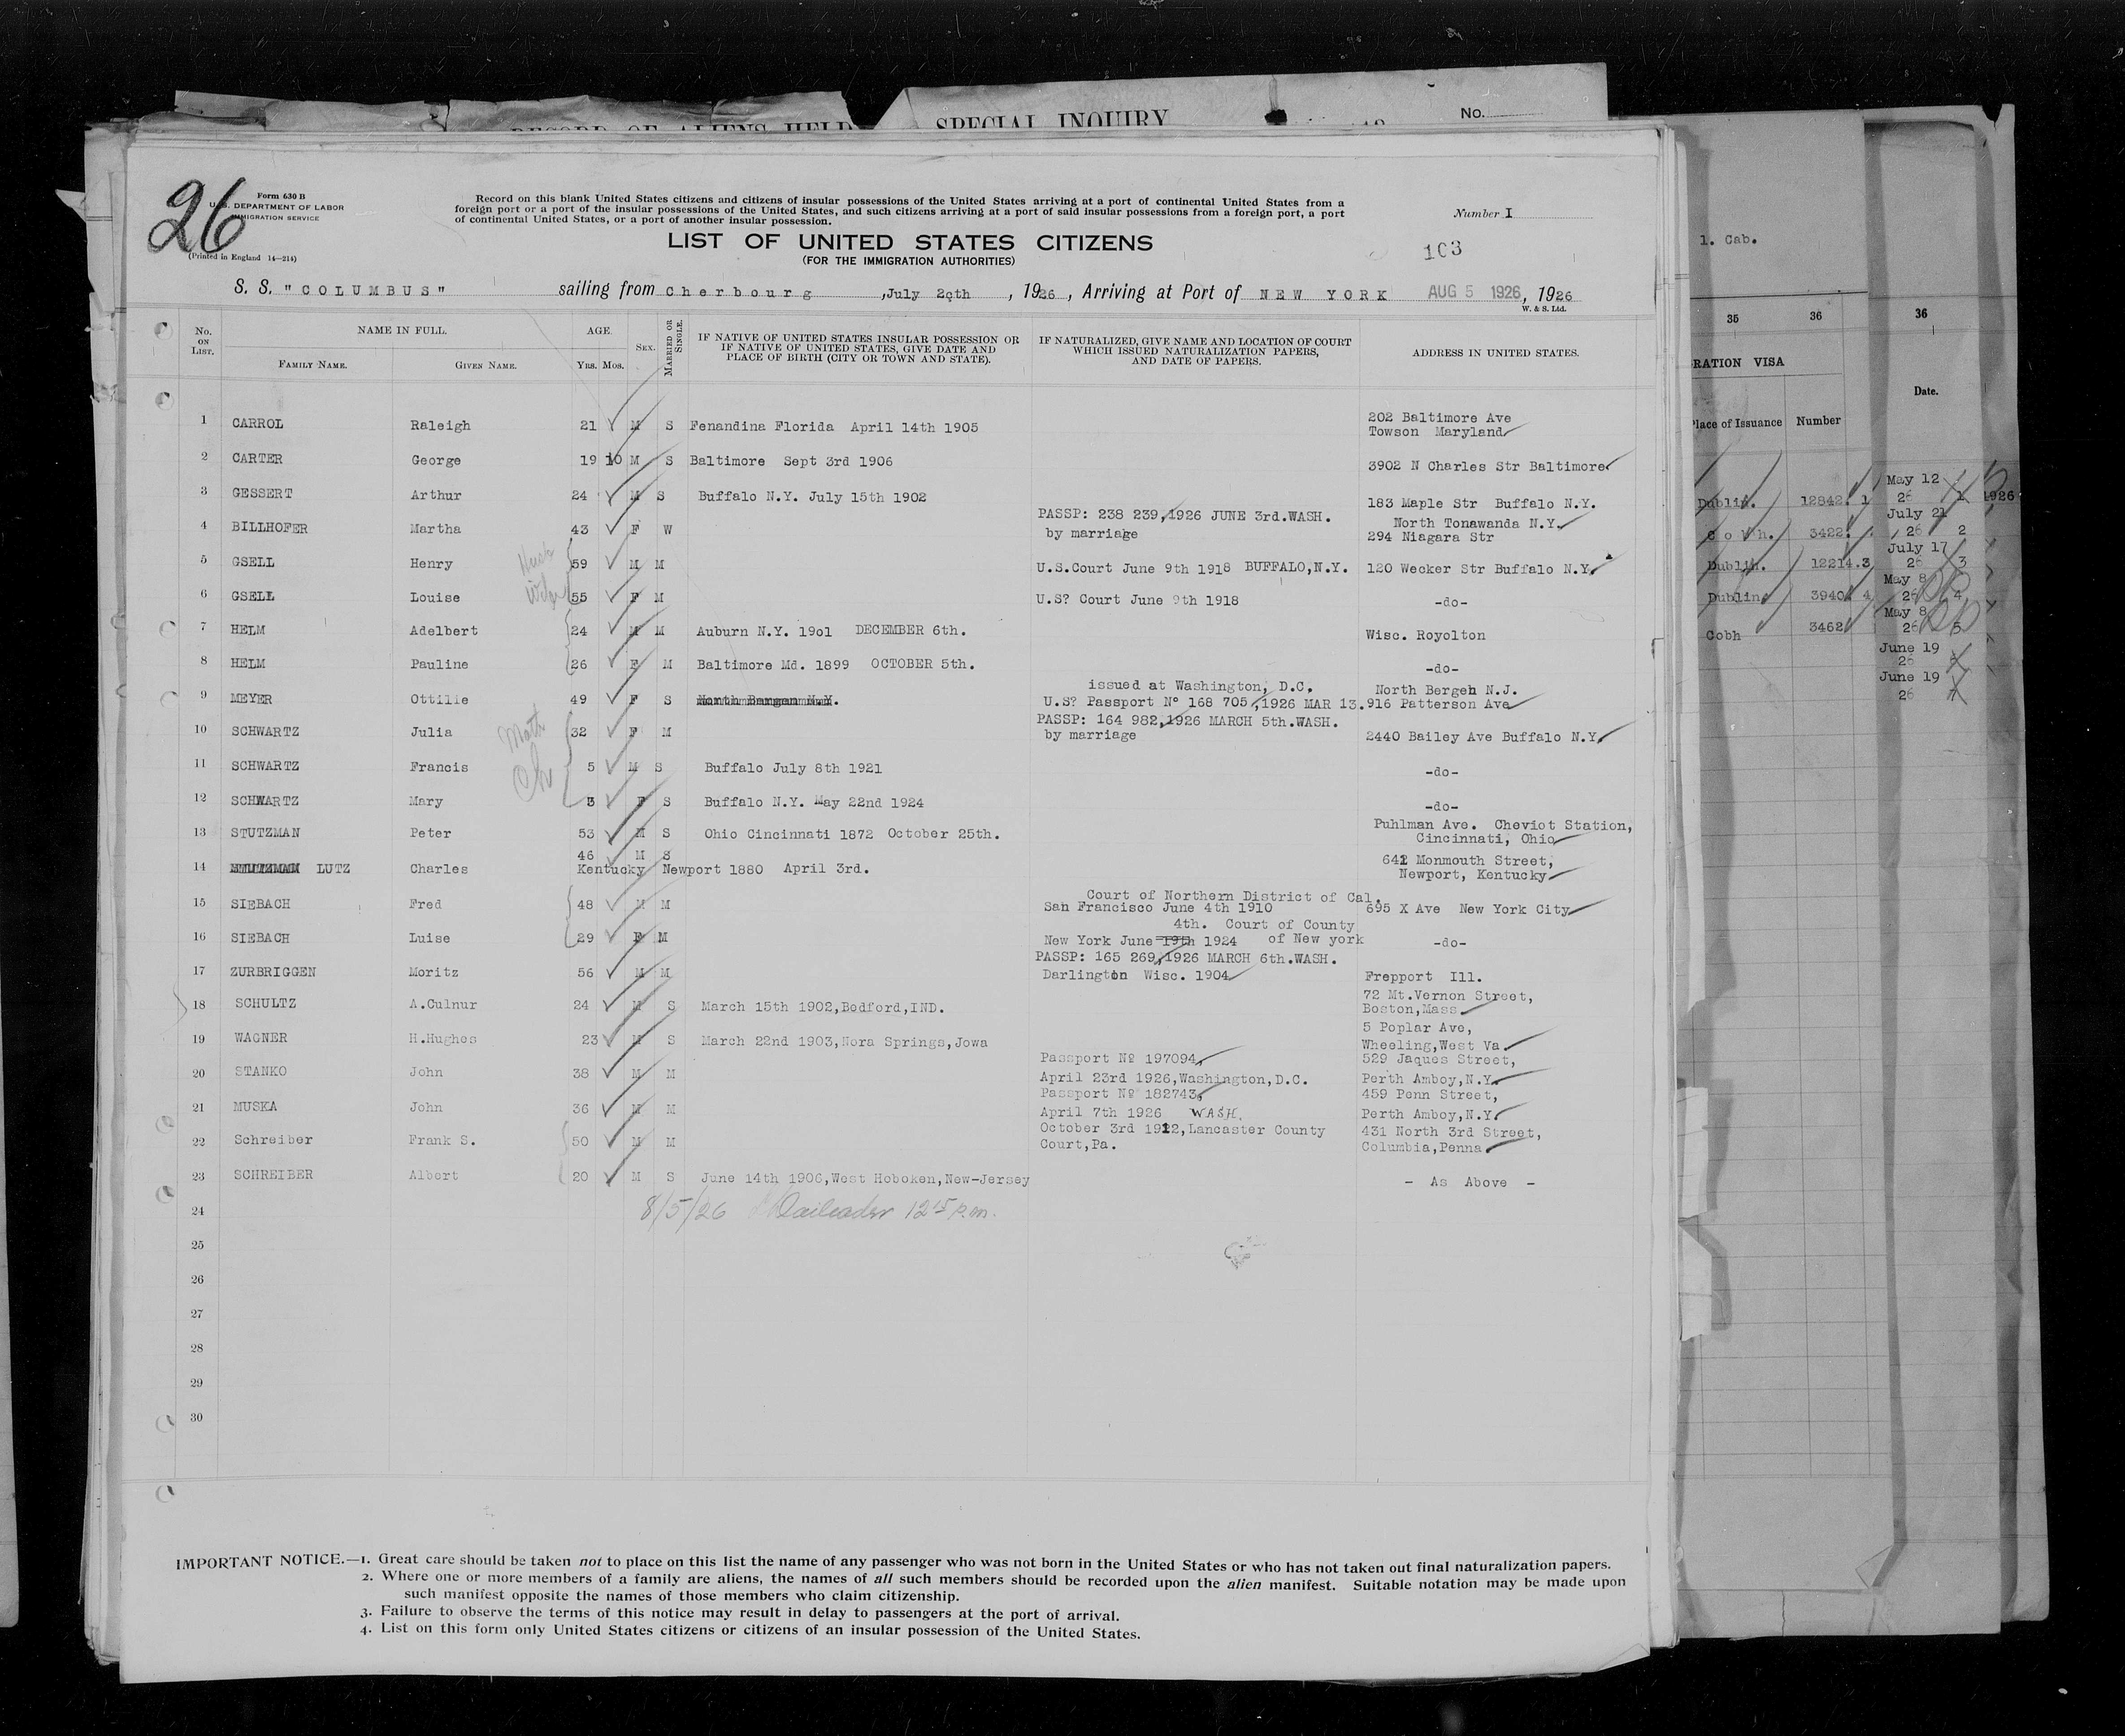 SPECIAL INQUIRY
No.
26
Form 630 B
U.S. DEPARTMENT OF LABOR
IMMIGRATION SERVICE
(Printed in England 14—214)
Record on this blank United States citizens and citizens of insular possessions of the United States arriving at a port of continental United States from a
foreign port or a port of the insular possessions of the United States, and such citizens arriving at a port of said insular possessions from a foreign port, a port
of continental United States, or a port of another insular possession.
Number I
LIST OF UNITED STATES CITIZENS
(FOR THE IMMIGRATION AUTHORITIES)
103
S. S. "COLUMBUS" sailing from Cherbourg ,July 29th , 1926 , Arriving at Port of NEW YORK AUG 5 1926, 1926
W. & S. Ltd.
No. ON LIST. NAME IN FULL. AGE. SEX. MARRIED OR SINGLE. IF NATIVE OF UNITED STATES INSULAR POSSESSION OR IF NATIVE OF UNITED STATES, GIVE DATE AND PLACE OF BIRTH (CITY OR TOWN AND STATE). IF NATURALIZED, GIVE NAME AND LOCATION OF COURT WHICH ISSUED NATURALIZATION PAPERS, AND DATE OF PAPERS. ADDRESS IN UNITED STATES.
FAMILY NAME. GIVEN NAME. YRS. MOS.
1 CARROL Raleigh 21 M S Fenandina Florida April 14th 1905 202 Baltimore Ave
Towson Maryland
2 CARTER George 19 10 M S Baltimore Sept 3rd 1906 3902 N Charles Str Baltimore
3 GESSERT Arthur 24 M S Buffalo N.Y. July 15th 1902 183 Maple Str Buffalo N.Y.
PASSP: 238 239,1926 JUNE 3rd.WASH. North Tonawanda N.Y.
4 BILLHOFER Martha 43 F W by marriage 294 Niagara Str
Husb
5 GSELL Henry 59 M M U.S.Court June 9th 1918 BUFFALO,N.Y. 120 Wecker Str Buffalo N.Y.
6 GSELL Louise 55 F M U.S? Court June 9th 1918 -do-
7 HELM Adelbert 24 M M Auburn N.Y. 19o1 DECEMBER 6th. Wisc. Royolton
8 HELM Pauline 26 F M Baltimore Md. 1899 OCTOBER 5th. -do-
issued at Washington, D.C. North Bergen N.J.
9 MEYER Ottilie 49 F S North Bergen N.Y. U.S? Passport Nº 168 705,1926 MAR 13. 916 Patterson Ave
PASSP: 164 982,1926 MARCH 5th.WASH.
10 SCHWARTZ Julia 32 F M by marriage 2440 Bailey Ave Buffalo N.Y.
Moth
Ch
11 SCHWARTZ Francis 5 M S Buffalo July 8th 1921 -do-
12 SCHWARTZ Mary 3 F S Buffalo N.Y. May 22nd 1924 -do-
13 STUTZMAN Peter 53 M S Ohio Cincinnati 1872 October 25th. Puhlman Ave. Cheviot Station,
Cincinnati, Ohio
46 M S
14 STUTZMAN LUTZ Charles Kentucky Newport 1880 April 3rd. 642 Monmouth Street,
Newport, Kentucky
Court of Northern District of Cal.
15 SIEBACH Fred 48 M M San Francisco June 4th 1910 695 X Ave New York City
4th. Court of County
16 SIEBACH Luise 29 F M New York June 19th 1924 of New york -do-
PASSP: 165 269,1926 MARCH 6th.WASH.
17 ZURBRIGGEN Moritz 56 M M Darlington Wisc. 1904 Frepport Ill.
18 SCHULTZ A.Culnur 24 M S March 15th 1902,Bedford,IND. 72 Mt.Vernon Street,
Boston,Mass
19 WAGNER H.Hughes 23 M S March 22nd 1903,Nora Springs,Jowa 5 Poplar Ave,
Wheeling,West Va.
Passport Nº 197094, 529 Jaques Street,
20 STANKO John 38 M M April 23rd 1926,Washington,D.C. Perth Amboy,N.Y.
Passport Nº 182743, 459 Penn Street,
21 MUSKA John 36 M M April 7th 1926 WASH. Perth Amboy,N.Y.
22 Schreiber Frank S. 50 M M October 3rd 1912,Lancaster County 431 North 3rd Street,
Court,Pa. Columbia,Penna
23 SCHREIBER Albert 20 M S June 14th 1906,West Hoboken,New-Jersey - As Above -
24 8/5/26 12 15 p.m.
25
26
27
28
29
30
IMPORTANT NOTICE.—1. Great care should be taken not to place on this list the name of any passenger who was not born in the United States or who has not taken out final naturalization papers.
2. Where one or more members of a family are aliens, the names of all such members should be recorded upon the alien manifest. Suitable notation may be made upon
such manifest opposite the names of those members who claim citizenship.
3. Failure to observe the terms of this notice may result in delay to passengers at the port of arrival.
4. List on this form only United States citizens or citizens of an insular possession of the United States.
1. Cab.
35 36 36
RATION VISA
Date.
Place of Issuance Number
May 12
Dublin. 12842. 1 26 1 1926
July 21
3422. 26 2
July 17
Dublin. 12214.3 26 3
May 8
Dublin 3940. 4 26 4
May 8
Cobh 3462 26 5
June 19
26
June 19
26